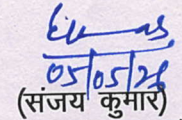 05/05/26
(संजय कुमार)